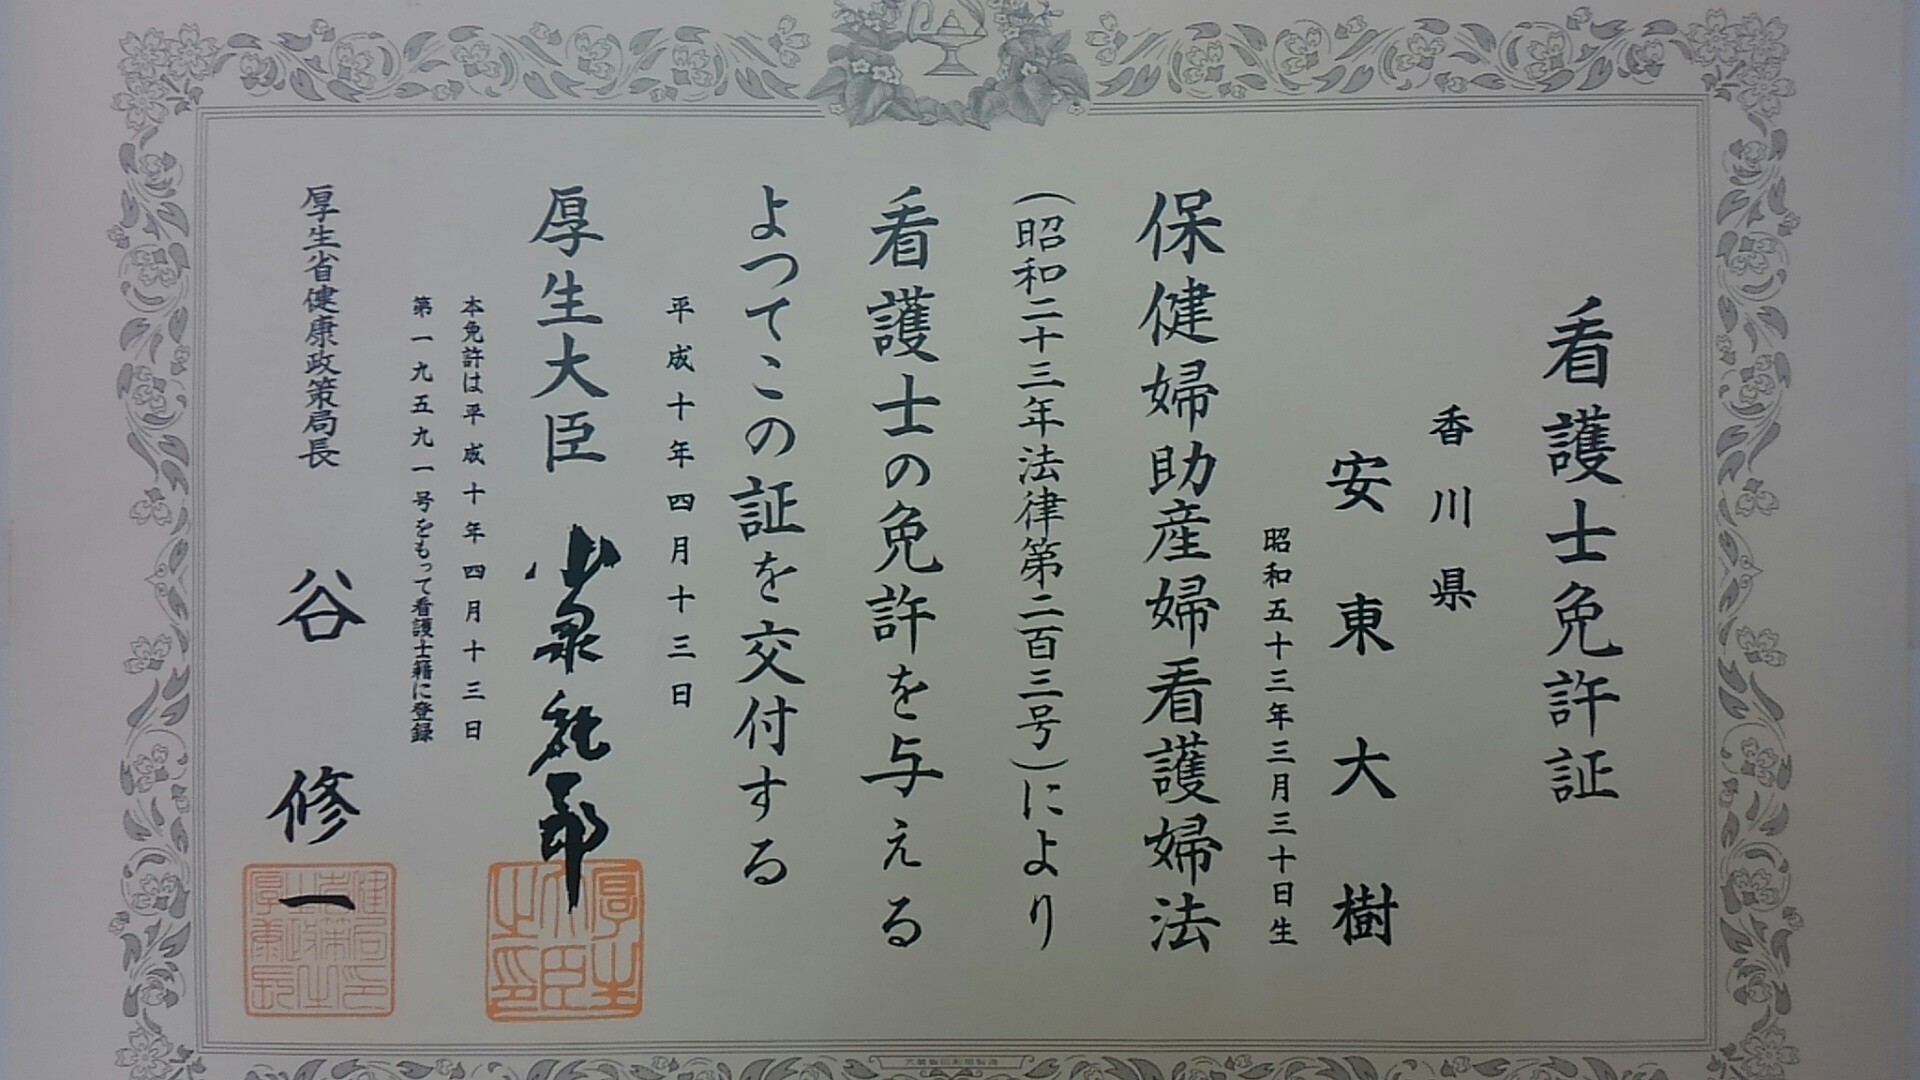 看護士免許証
香川県
安東大樹
昭和五十三年三月三十日生
保健婦助産婦看護婦法
(昭和二十三年法律第二百三号)により
看護士の免許を与える
よつてこの証を交付する
平成十年四月十三日
厚生大臣 小泉純一郎
本免許は平成十年四月十三日
第一九五九一号をもって看護士籍に登録
厚生省健康政策局長 谷修一